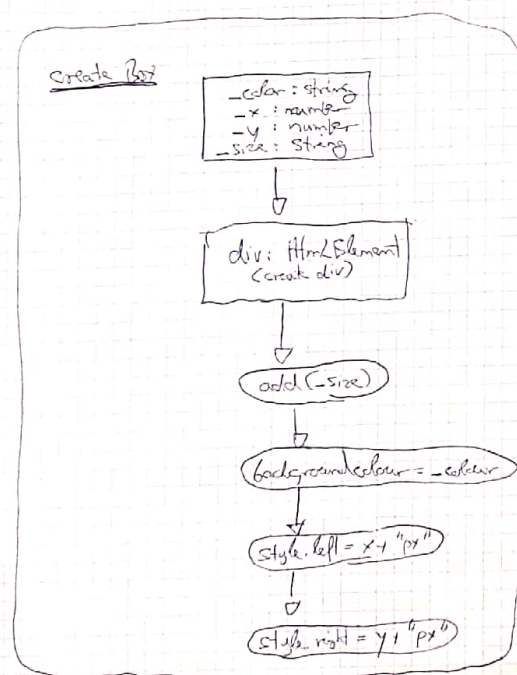 Create Box
_color : string
_x : number
_y : number
_size : string
div : HtmlElement
(create div)
add(_size)
backgroundcolour = _colour
style.left = x + "px"
style.right = y + "px"